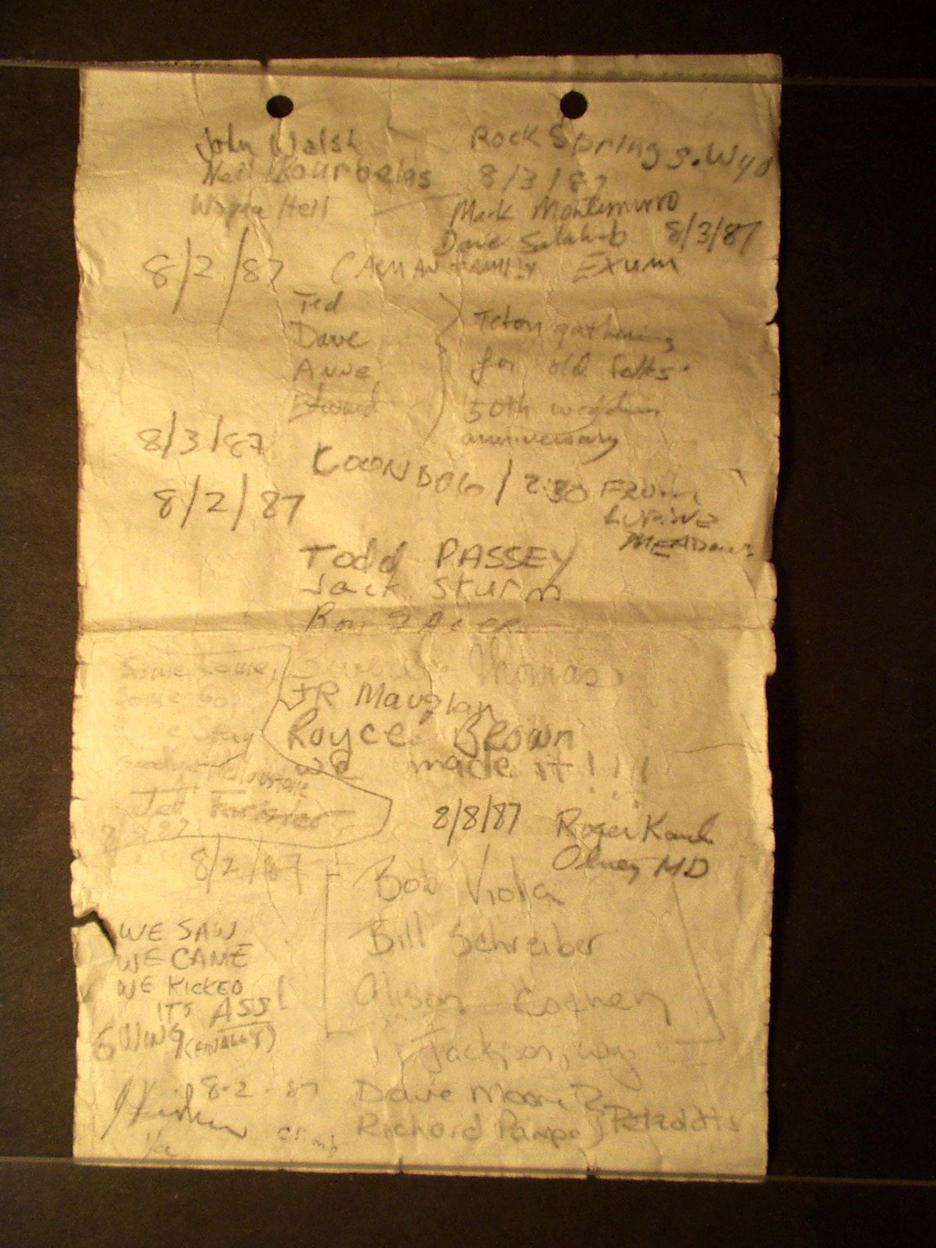 John Walsh
Neil
Wayne Hell
Rock Springs. Wyo
8/3/87
Mark Montemurro
Dave 8/3/87
8/2/87
FAMILY EXUM
Ted
Dave
ANNE
Teton gathering
for old folks'
50th wedding
anniversary
8/3/87
COONDOG / 2:30 FROM
LUPINE
MEADOWS
8/2/87
Todd PASSEY
Jack Sturm
Ron
Some Come,
Some Go,
Stay
Jeff
Thomas
JR Maughan
Royce Brown
we made it!!!
8/8/87 Roger
Olney MD
8/2/87
Bob Viola
Bill Schreiber
Alison
Jackson, Wy
WE SAW
WE CAME
WE KICKED
ITS ASS!
(FINALLY)
8-2-87
Dave Moore
Richard Pampe Petzoldts